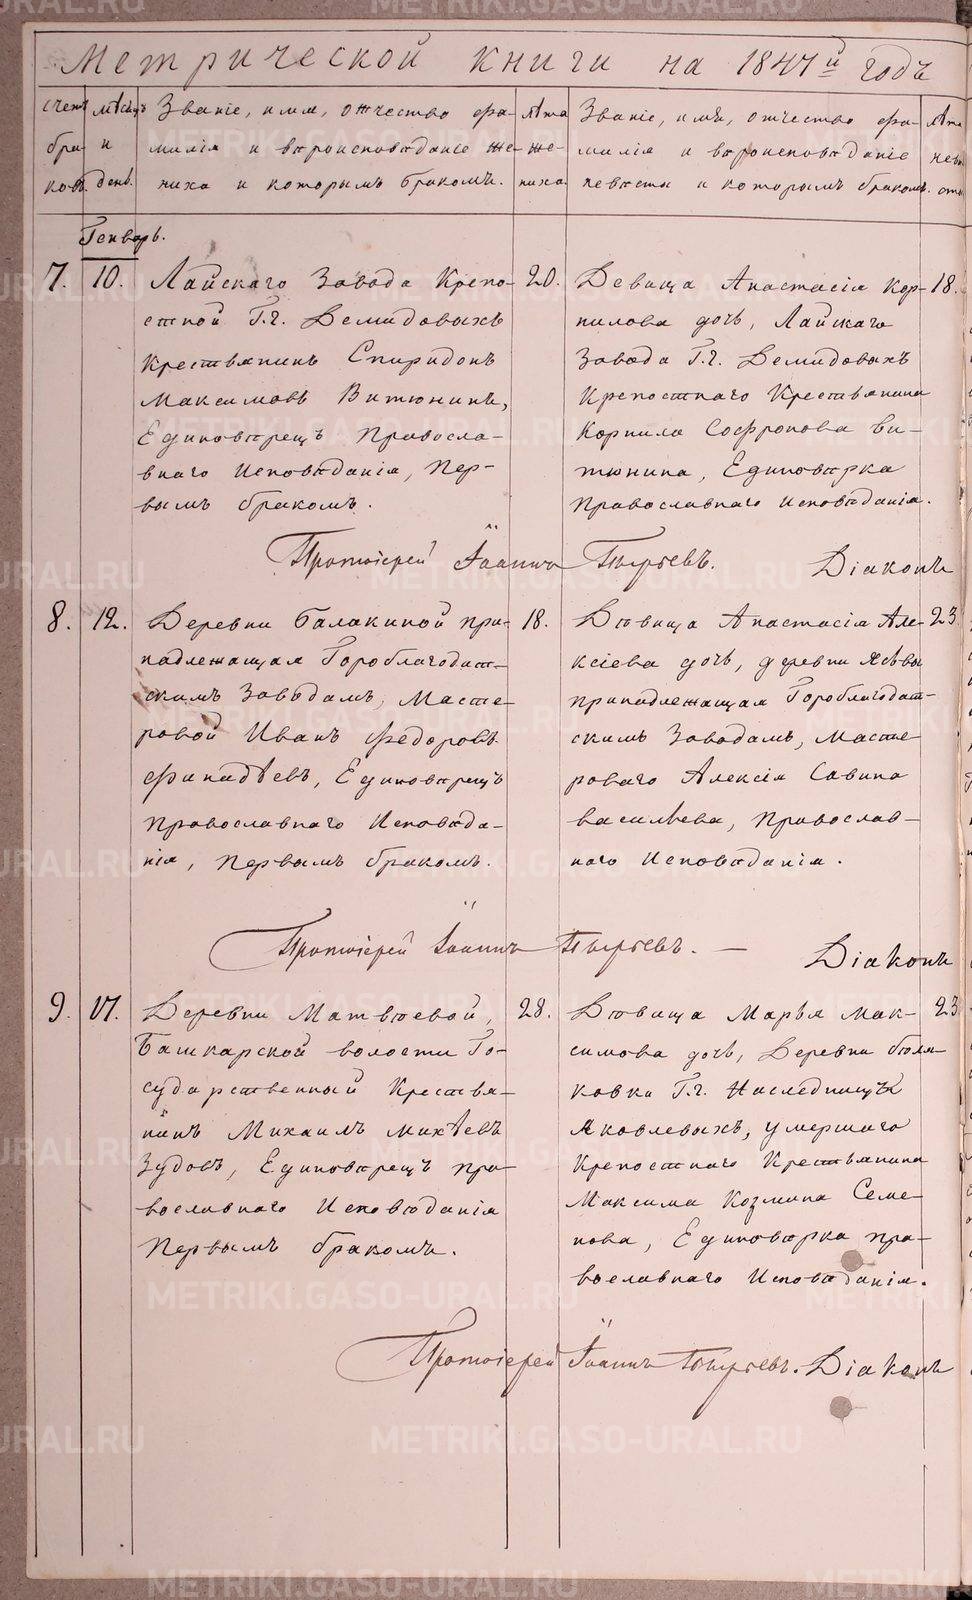 Метрической книги на 1847й годъ
счетъ браковъ.
мѣсяцъ и день.
Званіе, имя, отчество фа-
милія и вѣроисповѣданіе же-
ниха и которымъ бракомъ.
Лѣта
же-
ниха.
Званіе, имя, отчество фа-
милія и вѣроисповѣданіе
невѣсты и которымъ бракомъ.
Лѣта
невѣ
сты
Генварь.
7.
10.
Лайскаго Завода Крѣпо-
стной Г.г. Демидовыхъ
Крестьянинъ Спиридонъ
Максимовъ Витюнинъ,
Единовѣрецъ Правосла-
внаго Исповѣданія, Пер-
вымъ бракомъ.
20.
Девица Анастасія Кор-
нилова дочь, Лайскаго
Завода Г.г. Демидовыхъ
Крепостнаго Крестьянина
Корнила Софронова Ви-
тюнина, Единовѣрка
Православнаго исповѣданія.
18.
Протоіерей Іоаннъ Пырьевъ.
Діаконъ
8.
12.
Деревни Балакиной при-
надлежащая Гороблагодат-
скимъ Заводамъ, Масте-
ровой Иванъ Федоровъ
Финадѣевъ, Единовѣрецъ
Православнаго Исповѣда-
нія, Первымъ бракомъ.
18.
Дѣвица Анастасія Але-
ксіева дочь, деревни Ясьвы
принадлежащая Гороблагодат-
скимъ Заводамъ, Масте-
роваго Алексія Савина
Васильева, Православ-
наго Исповѣданія.
23.
Протоіерей Іоаннъ Пырьевъ. —
Діаконъ
9.
17.
Деревни Матвѣевой,
Башкарской волости Го-
сударственный Крестья-
нинъ Михаилъ Михѣевъ
Зудовъ, Единовѣрецъ пра-
вославнаго Исповѣданія
Первымъ бракомъ.
28.
Дѣвица Марья Мак-
симова дочь, Деревни
Г.г. Наследницъ
Яковлевыхъ, умершаго
Крепостнаго Крестьянина
Максима Козмина Семе-
нова, Единовѣрка пра-
вославнаго Исповѣданія.
23
Протоіерей Іоаннъ Пырьевъ.
Діаконъ
METRIKI.GASO-URAL.RU